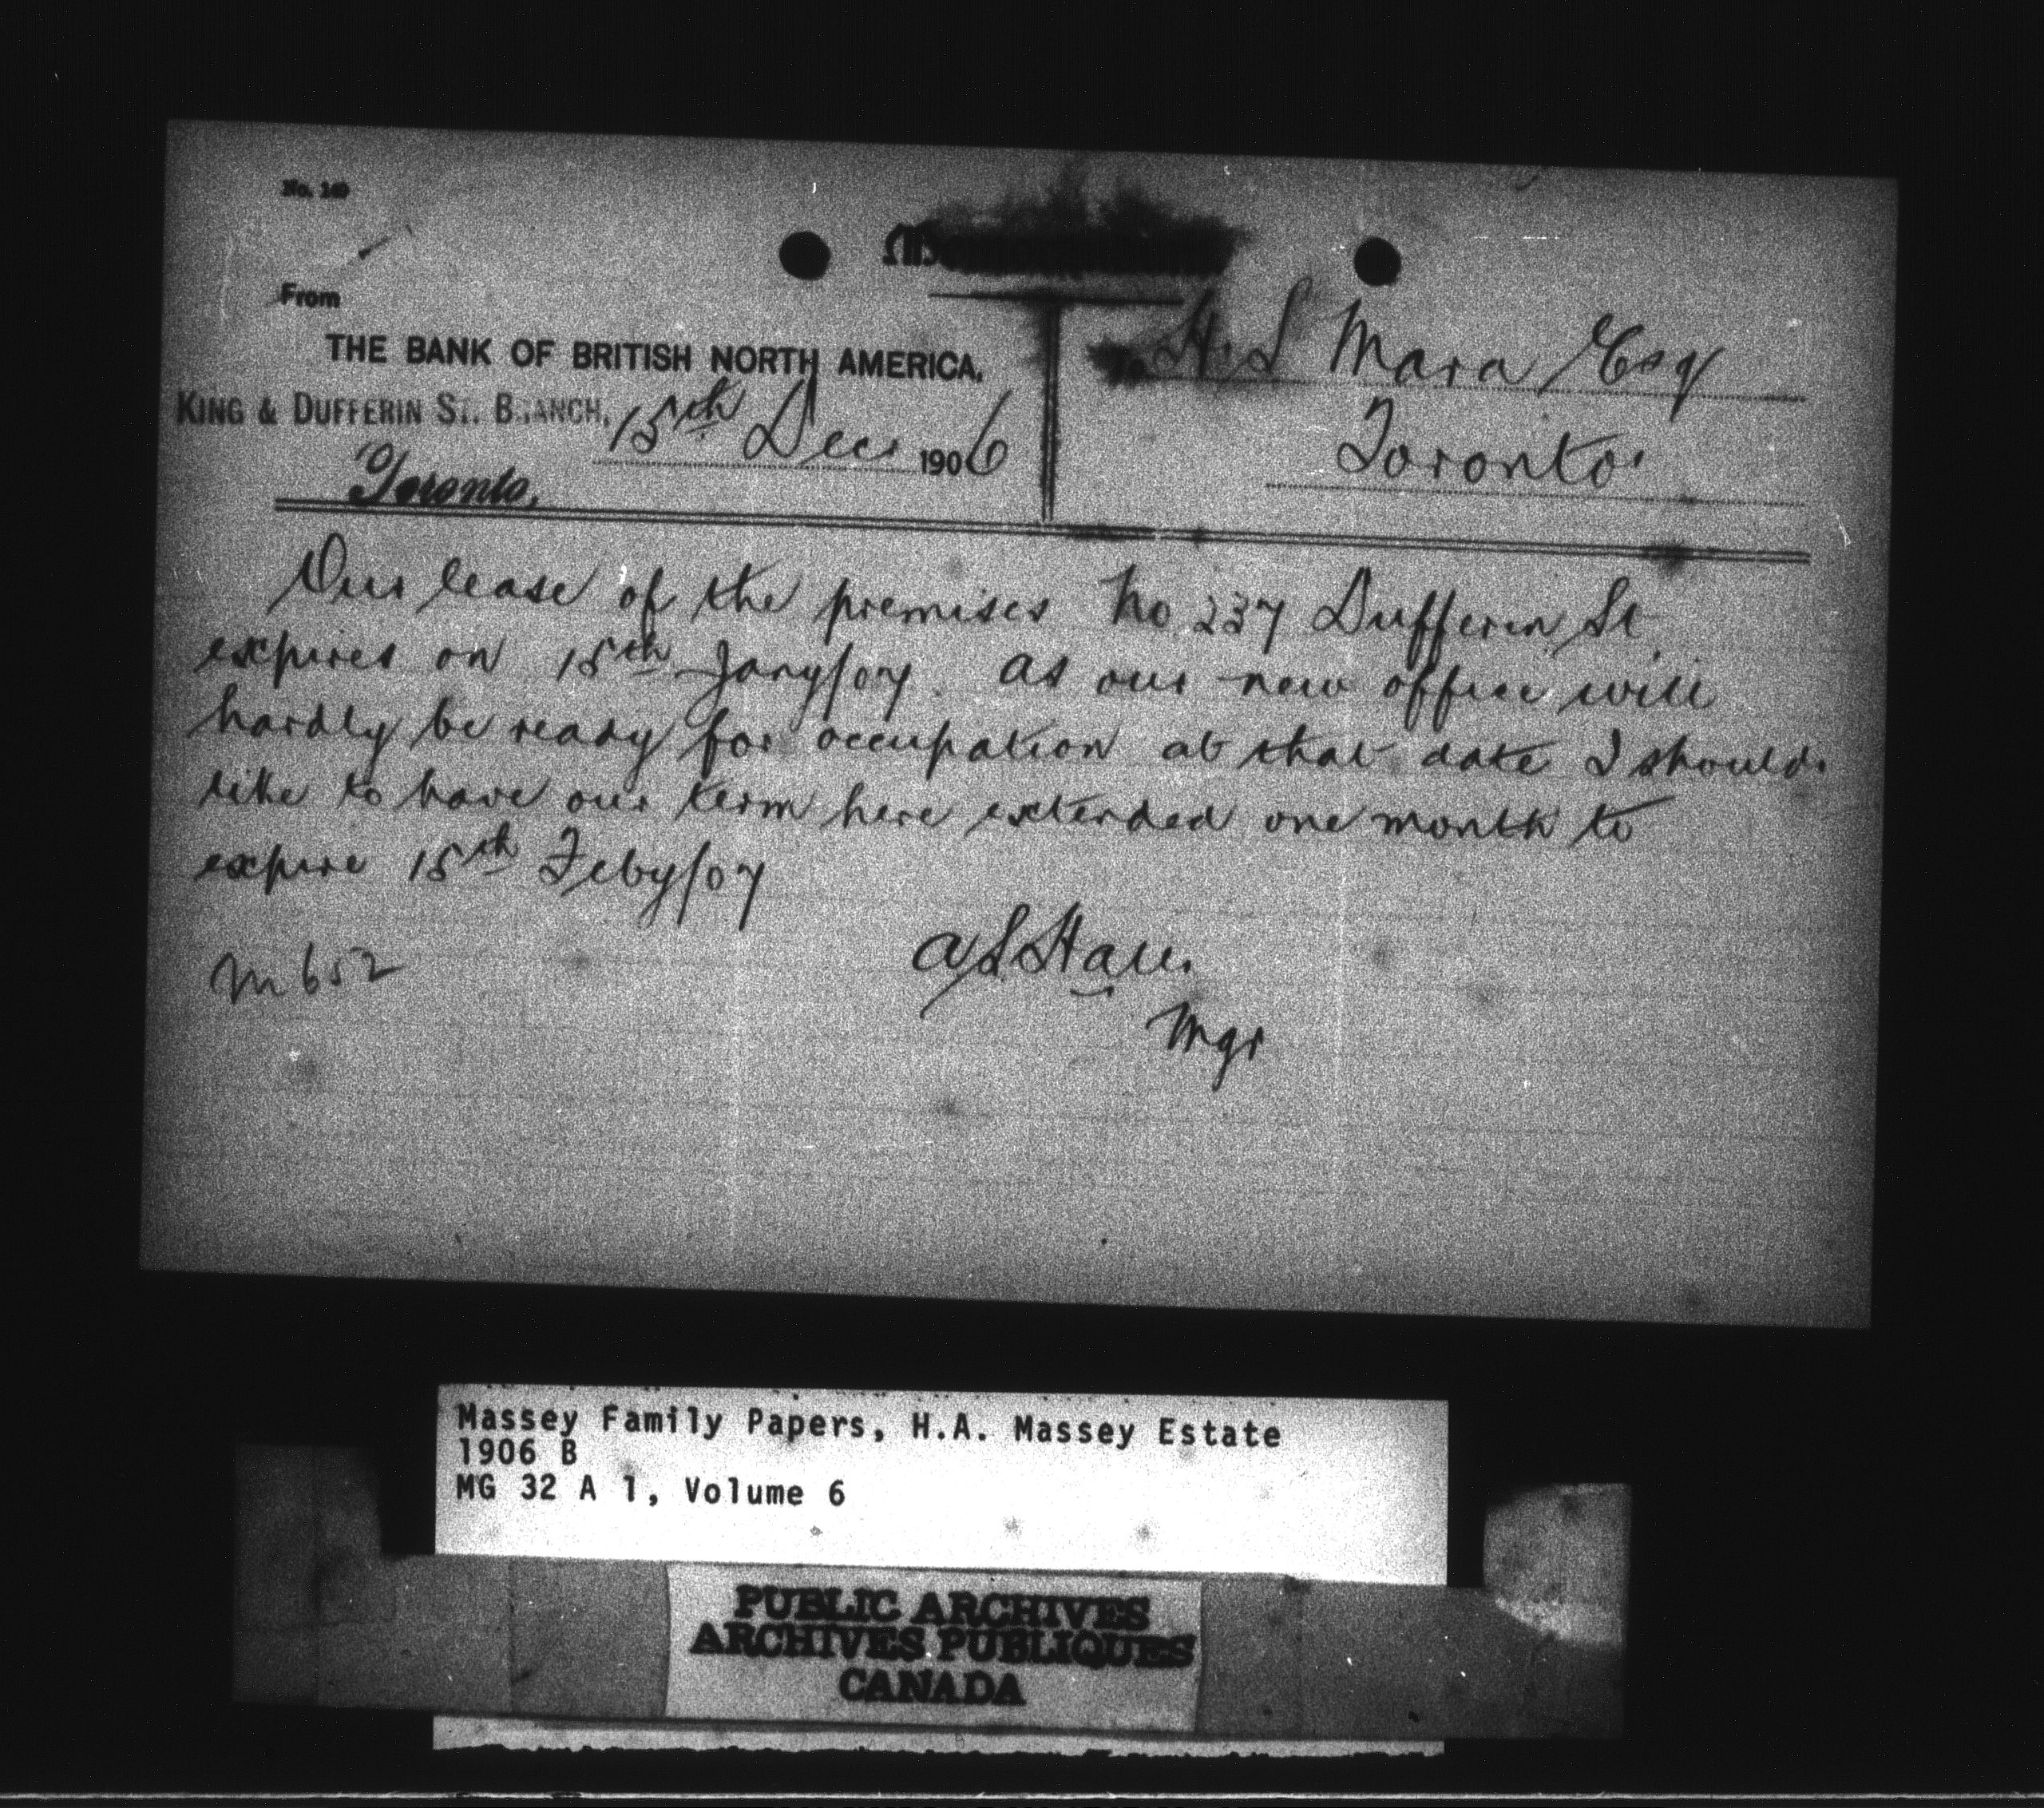 No. 140
Memorandum
From
THE BANK OF BRITISH NORTH AMERICA,
KING & DUFFERIN ST. BRANCH,
15th Dec 1906
Toronto,
To H S Mara Esq
Toronto
Our lease of the premises No 237 Dufferin St
expires on 15th Jany/07. As our new office will
hardly be ready for occupation at that date I should
like to have our term here extended one month to
expire 15th Feby/07
Mgr
m 652
Massey Family Papers, H.A. Massey Estate
1906 B
MG 32 A 1, Volume 6
PUBLIC ARCHIVES
ARCHIVES PUBLIQUES
CANADA